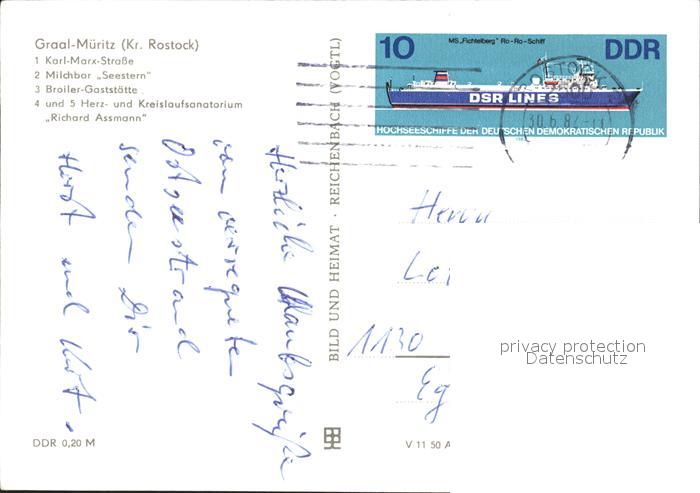 Graal-Müritz (Kr. Rostock)
1 Karl-Marx-Straße
2 Milchbar „Seestern"
3 Broiler-Gaststätte
4 und 5 Herz- und Kreislaufsanatorium
„Richard Assmann"
Herzliche Urlaubsgrüße
vom verregneten
Ostseestrand
senden Dir
Horst und
DDR 0,20 M
BILD UND HEIMAT · REICHENBACH (VOGTL)
V 11 50 A
10
MS „Fichtelberg" Ro-Ro-Schiff
DDR
DSR LINES
HOCHSEESCHIFFE DER DEUTSCHEN DEMOKRATISCHEN REPUBLIK
30.6.82
Herrn
1130
privacy protection
Datenschutz